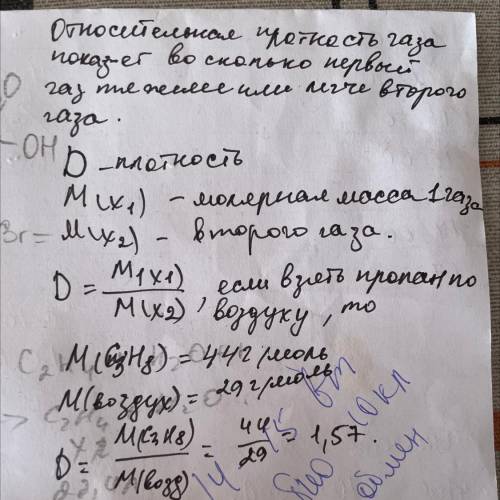 Относительная плотность газа
показ-ет во сколько первый
газ тяжелее или легче второго
газа.
-OH
D - плотность
M(x1) - молярная масса 1 газа
Br=
M(x2) - второго газа.
D = M1(x1) / M(x2), если взять пропан по
воздуху, то
M(C3H8) = 44 г/моль
M(воздух) = 29 г/моль
D = M(C3H8) / M(возд) = 44 / 29 = 1,57.
10 кл